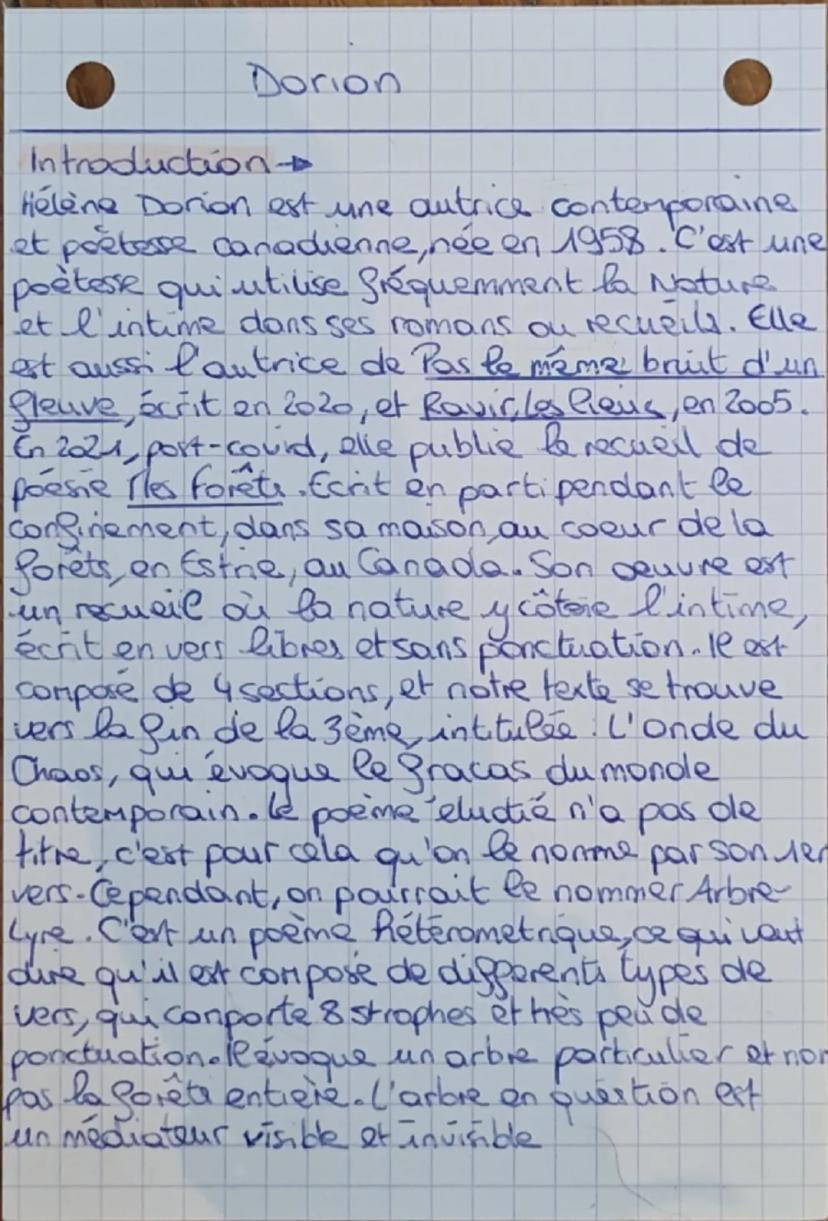 Dorion
Introduction →
Hélène Dorion est une autrice contemporaine
et poètesse canadienne, née en 1958. C'est une
poètesse qui utilise fréquemment la Nature
et l'intime dans ses romans ou recueils. Elle
est aussi l'autrice de Pas le même bruit d'un
fleuve, écrit en 2020, et Ravir, les lieux, en 2005.
En 2021, post-covid, elle publie le recueil de
poésie Mes forêts. Ecrit en parti pendant le
confinement, dans sa maison, au coeur de la
forêts, en Estrie, au Canada. Son oeuvre est
un recueil où la nature y côtoie l'intime,
écrit en vers libres et sans ponctuation. Il est
composé de 4 sections, et notre texte se trouve
vers la fin de la 3ème, intitulée : L'onde du
Chaos, qui évoque le fracas du monde
contemporain. Le poème eludtié n'a pas de
titre, c'est pour cela qu'on le nomme par son 1er
vers. Cependant, on pourrait le nommer Arbre-
Lyre. C'est un poème hétérometrique, ce qui veut
dire qu'il est composé de differents types de
vers, qui comporte 8 strophes et très peu de
ponctuation. Il évoque un arbre particulier et non
pas la forêts entière. L'arbre en question est
un médiateur visible et invisible